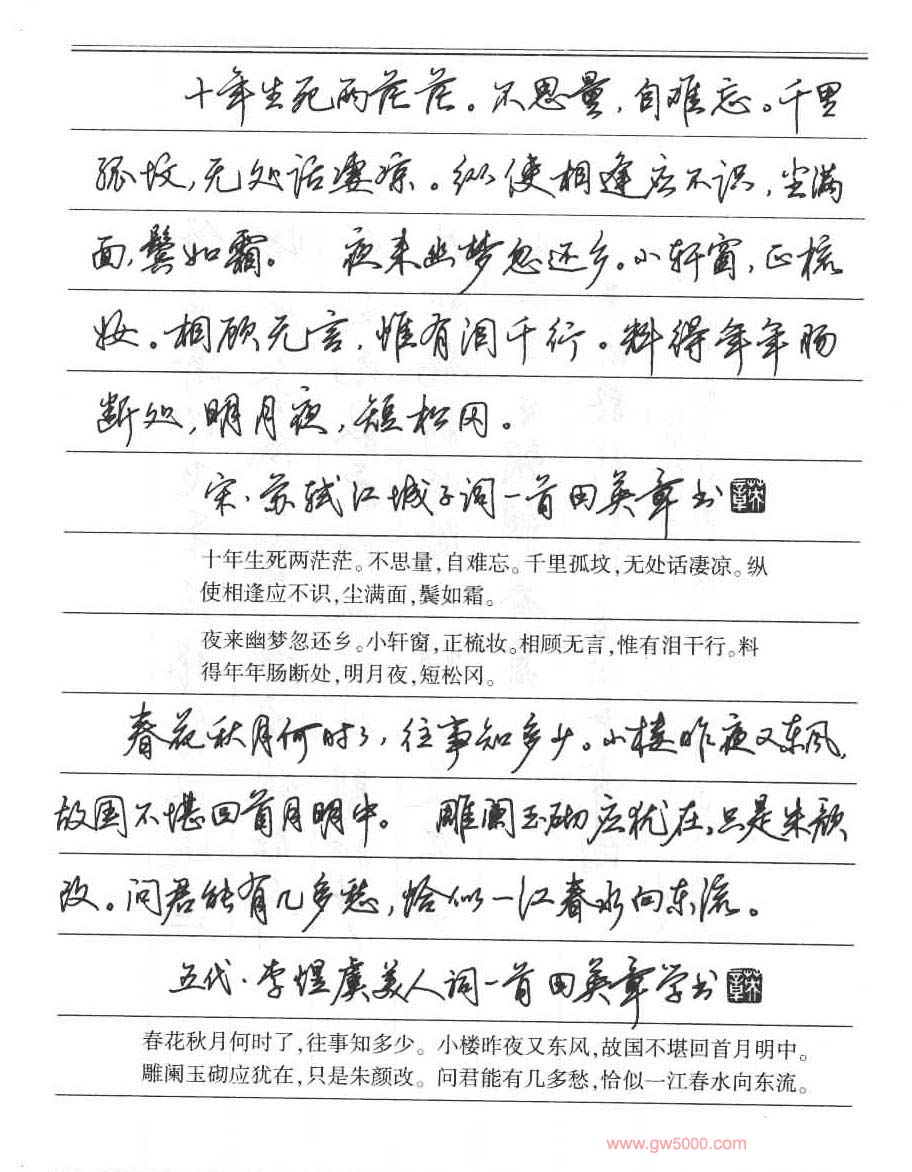 十年生死两茫茫。不思量,自难忘。千里
孤坟,无处话凄凉。纵使相逢应不识,尘满
面,鬓如霜。 夜来幽梦忽还乡。小轩窗,正梳
妆。相顾无言,惟有泪千行。料得年年肠
断处,明月夜,短松冈。
宋·苏轼江城子词一首田英章书
十年生死两茫茫。不思量,自难忘。千里孤坟,无处话凄凉。纵
使相逢应不识,尘满面,鬓如霜。
夜来幽梦忽还乡。小轩窗,正梳妆。相顾无言,惟有泪千行。料
得年年肠断处,明月夜,短松冈。
春花秋月何时了,往事知多少。小楼昨夜又东风,
故国不堪回首月明中。 雕阑玉砌应犹在,只是朱颜
改。问君能有几多愁,恰似一江春水向东流。
五代·李煜虞美人词一首田英章学书
春花秋月何时了,往事知多少。小楼昨夜又东风,故国不堪回首月明中。
雕阑玉砌应犹在,只是朱颜改。问君能有几多愁,恰似一江春水向东流。
www.gw5000.com